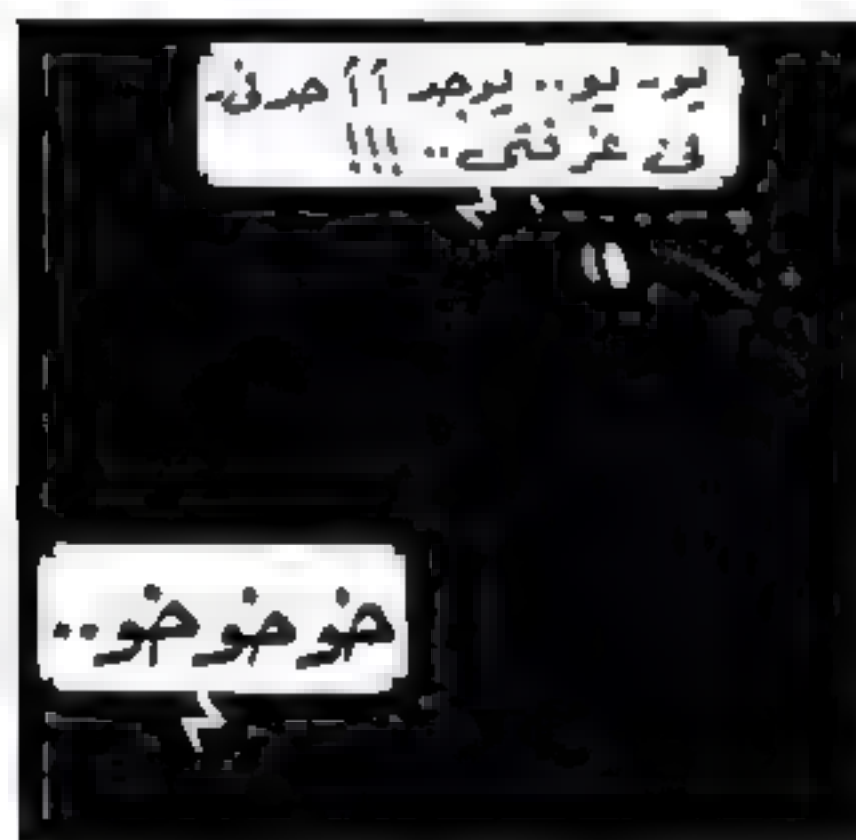 يو- يو.. يوجد أ أ حدفى-
فى غرفتى.. !!!
خو خو خو..